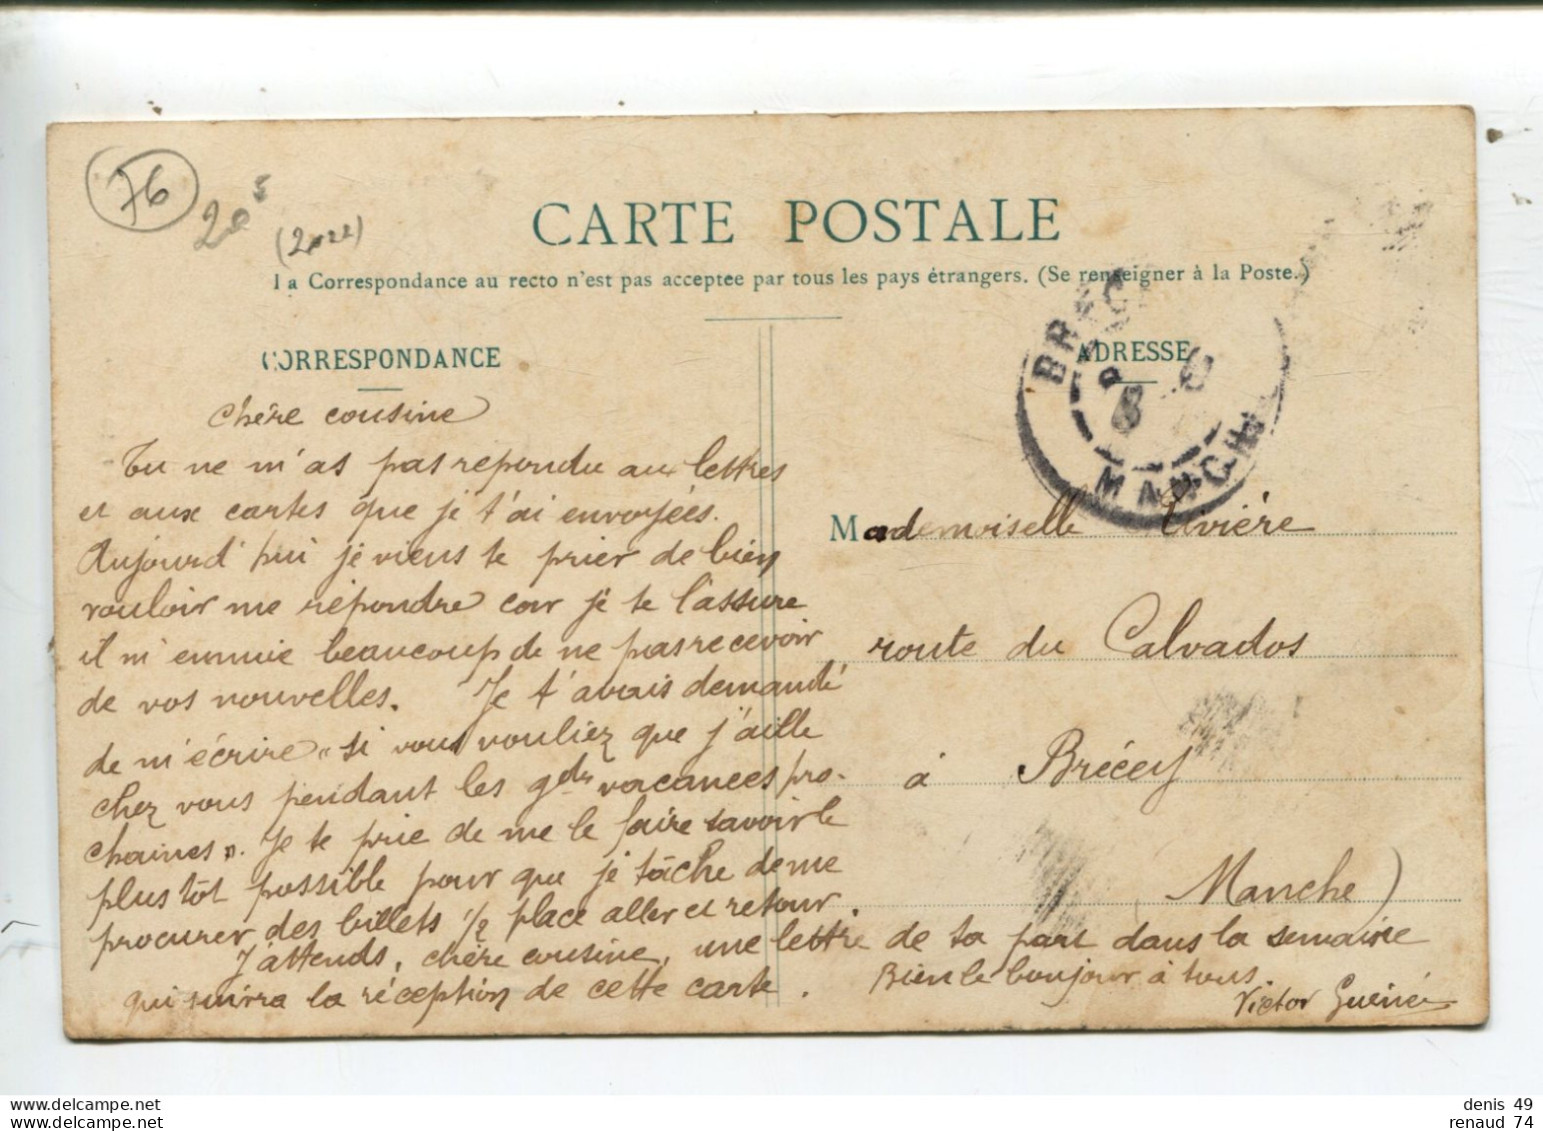 76
20 5
(2022)
CARTE POSTALE
La Correspondance au recto n'est pas acceptee par tous les pays étrangers. (Se renseigner à la Poste.)
CORRESPONDANCE
ADRESSE
BRÉC
MANCHE
Chère cousine
Tu ne m'as pas repondu aux lettres
et aux cartes que je t'ai envoyées.
Aujourd'hui je viens te prier de bien
vouloir me répondre car je te l'assure
il m'ennuie beaucoup de ne pas recevoir
de vos nouvelles. Je t'avais demandé
de m'écrire "si vous vouliez que j'aille
chez vous pendant les gdes vacances pro-
chaines". Je te prie de me le faire savoir le
plus tôt possible pour que je tâche de me
procurer des billets 1/2 place aller et retour.
J'attends, chère cousine, une lettre de ta part dans la semaine
qui suivra la réception de cette carte.
Bien le bonjour à tous.
Victor Guénée
Mademoiselle
route du Calvados
à Brécey
Manche)
denis 49
renaud 74